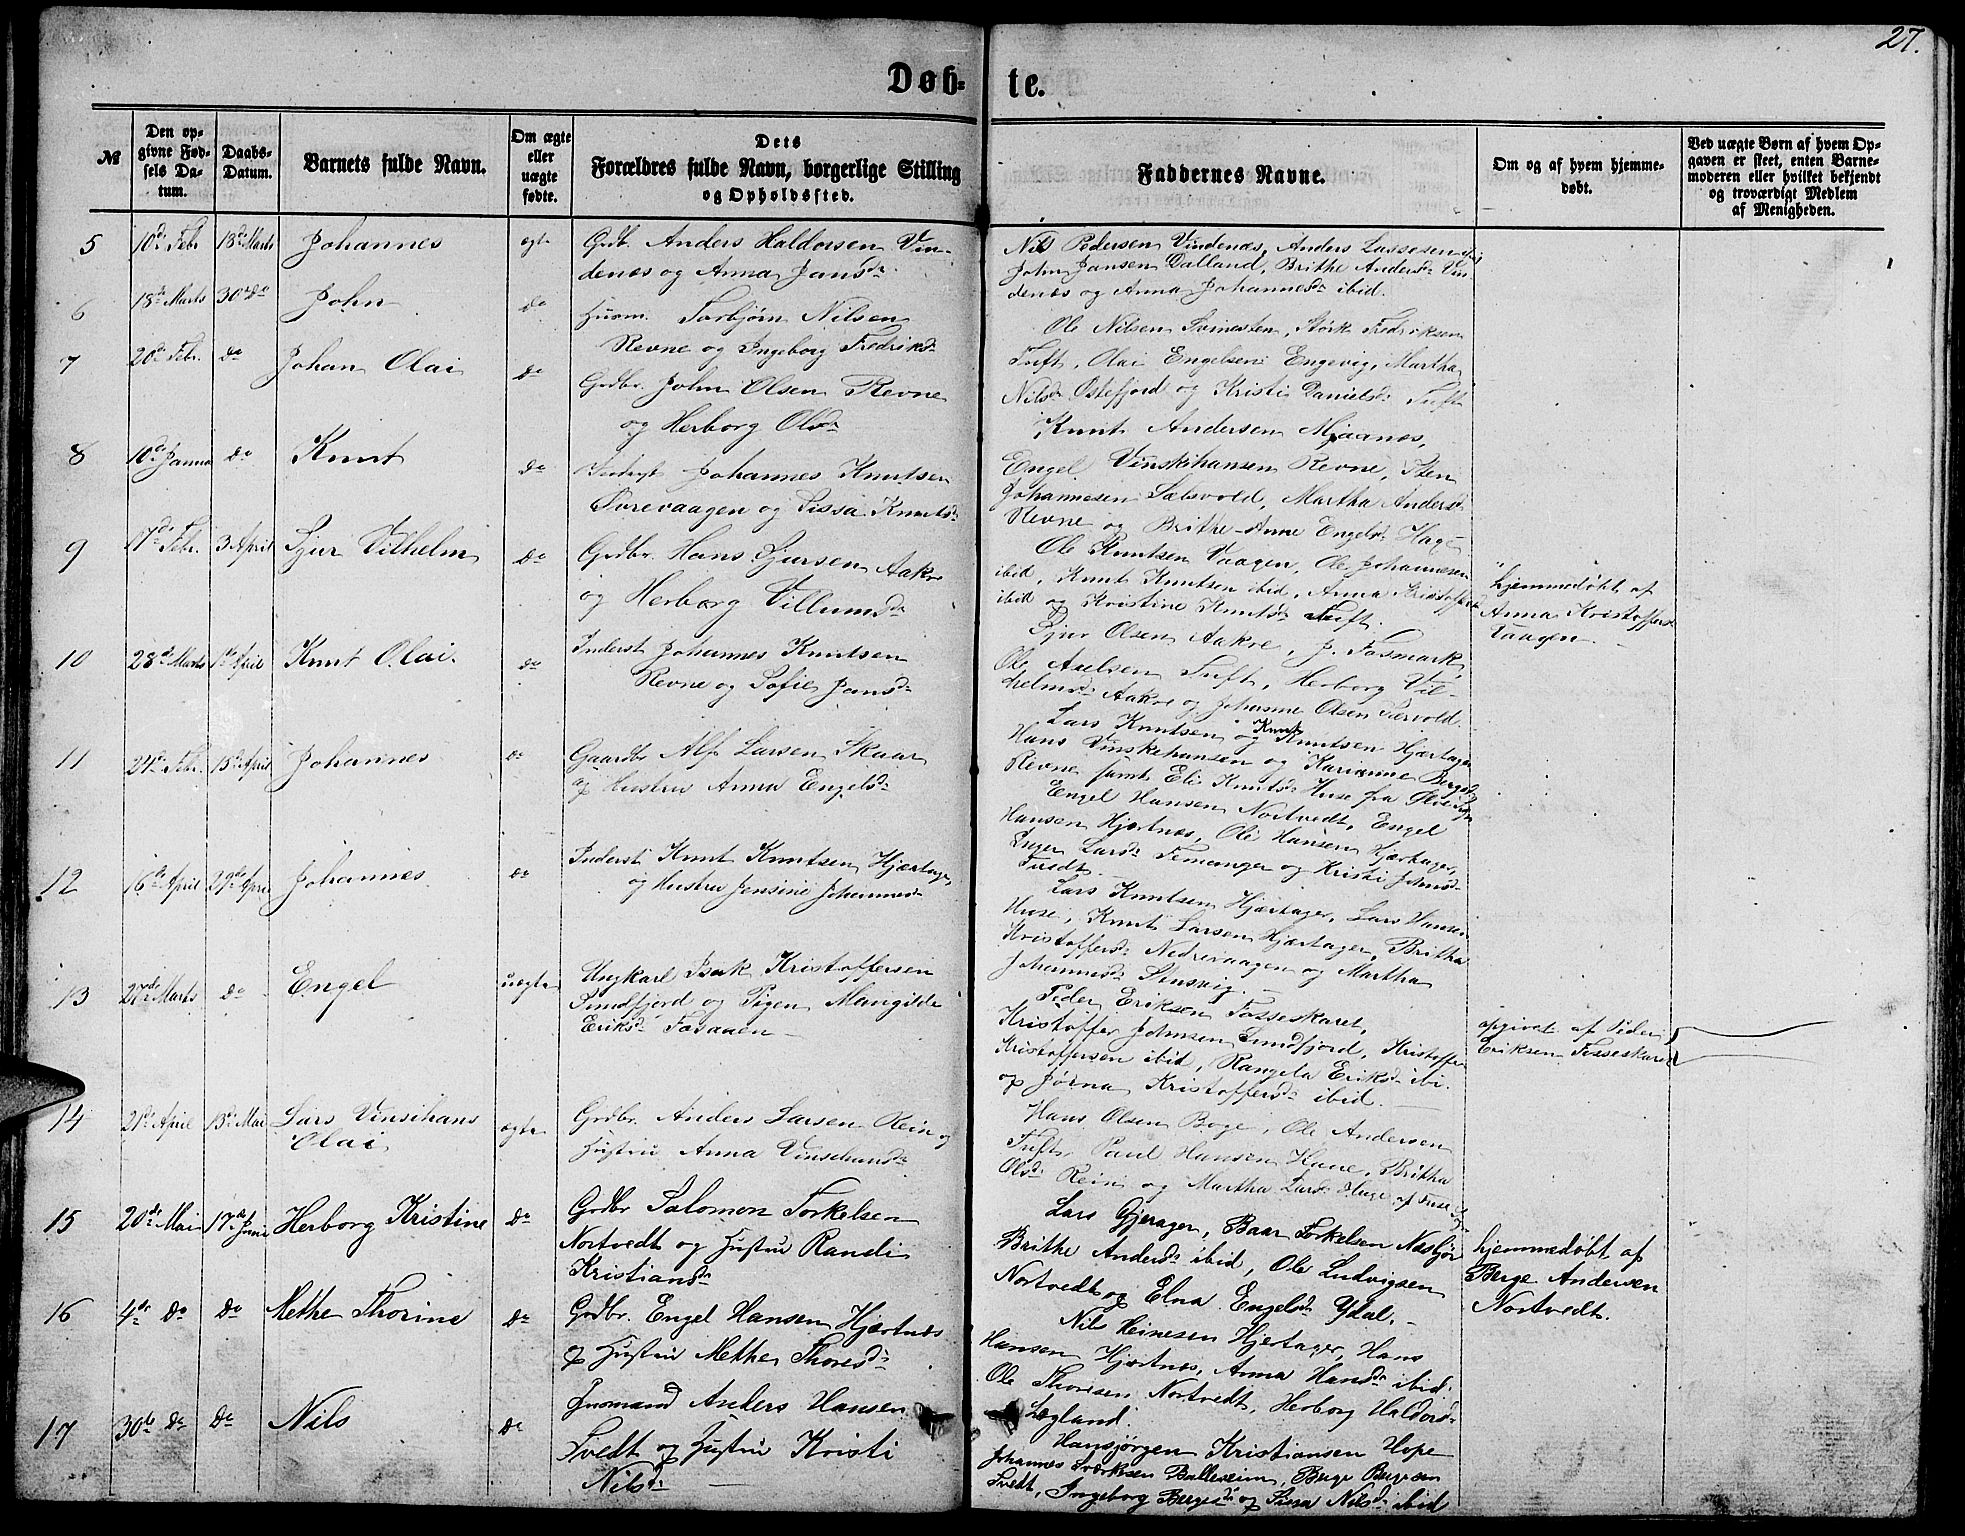 27.
Døb-
te.
№
Den op-
givne Fød-
sels Da-
tum.
Daabs-
Datum.
Barnets fulde Navn.
Om ægte
eller
uægte
fødte.
Dets
Forældres fulde Navn, borgerlige Stilling
og Opholdssted.
Faddernes Navne.
Om og af hvem hjemme-
døbt.
Ved uægte Børn af hvem Op-
gaven er skeet, enten Barne-
moderen eller hvilket bekjendt
og troværdigt Medlem
af Menigheden.
5 10de Febr 18de Marts Johannes ægte Grdbr. Anders Haldorsen Vin-
denæs og Anna Jansdr.
Nils Pedersen Vindenæs, Anders Lassesen ibid
John Jansen Dalland, Brithe Andersdr Vin
denæs og Anna Johannesdr ibid.
6 18de Marts 30 do John do Huusm. Torbjørn Nilsen
Revne og Ingeborg Fredriksdr
Ole Nilsen Svinesten, Størk Fredriksen
Tuft, Olai Engelsen Engevig, Martha
Nilsdr Østefjord og Kristi Danielsdr Tuft
7 20de Febr. do Johan Olai do Grdbr. John Olsen Revne
og Herborg Olsdr
Knut Andersen Mjaanæs,
Engel Vinskihansen Revne, Sten
Johannesen Sælsvold, Martha Andersdr
Revne og Brithe Anne Engelsdr Hage
8 10de Janua do Knut do Inderst Johannes Knutsen
Ørevaagen og Sissa Knutsdr
Ole Knutsen Vaagen, Ole Johannesen
ibid, Knut Knutsen ibid, Anna Kristoffersdr
ibid og Kristine Knutsdr Tuft.
hjemmedøbt af
Anna Kristoffersdr
Vaagen
9 17de Febr. 3 April Sjur Vilhelm do Grdbr. Hans Sjursen Aakre
og Herborg Villumsdr
Sjur Olsen Aakre, J. Fosmark,
Ole Axelsen Tuft, Herborg Vil-
helmsdr Aakre og Johanne Olsen Sævold.
10 28de Marts 1ste April Knut Olai. do Inderst Johannes Knutsen
Revne og Sofie Jansdr
Lars Knutsen og Knut Knutsen Hjærtager
Hans Vinskehansen og Karianne Bergesdr
Revne samt Eli Knutsdr Huse fra
11 24de Febr. 15de April Johannes do Gaardbr Alf Larsen Skaar
og Hustru Anna Engelsdr
Engel Hansen Nortvedt, Engel
Hansen Hjærtnæs, Ole Hansen Hjærtager,
Inger Larsdr Femanger og Kristi Johnsdr
Tvedt
12 16de April 29de April Johannes do Inderst Knut Knutsen Hjærtager
og Hustru Jensine Johannesdr
Lars Knutsen Hjærtager, Lars Hansen
Huse, Knut Larsen Hjærtager, Britha
Kristoffersdr Nedrevaagen og Martha
Johannesdr Stusvig.
13 27de Marts do Engel uægte Ungkarl Isak Kristoffersen
Sundfjord og Pigen Mangilde
Eriksdr Fosanen
Peder Eriksen Fosseskaret,
Kristoffer Johnsen Sundfjord, Kristoffer
Kristoffersen ibid, Rangela Eriksdr ibi.
og Jørna Kristoffersdr ibid.
opgivet af Peder
Eriksen Fosseskaret
14 21de April 13de Mai Lars Vinsihans
Olai
ægte Grdbr. Anders Larsen Rein og
Hustru Anna Vinsehansdr
Hans Olsen Boge, Ole Andersen
Tuft, Paul Hansen Hane, Britha
Olsdr Rein og Martha Larsdr Hage af Fuse Sogn
15 20de Mai 17de Juni Herborg Kristine do Grdbr Salomon Torkelsen
Nortvedt og Hustru Randi
Kristiansdr
Lars Gjerager, Baar Torkelsen Næsbjør
Brithe Andersdr ibid, Ole Ludvigsen
Nortvedt og Elna Engelsdr Ydal.
hjemmedøbt af
Berge Andersen
Nortvedt.
16 4de do do Methe Thorine do Grdbr. Engel Hansen Hjærtnæs
og Hustru Methe Thoresdr
Nils Heinesen Hjertager, Hans
Hansen Hjærtnæs, Anna Hansdr ibid.
Ole Thoresen Nortvedt, Herborg Haldorsdr
Lægland.
17 30te do do Nils do Husmand Anders Hansen
Tvedt og Hustru Kristi
Nilsdr
Hansjørgen Kristiansen Hope
Johannes Sværkesen Balleseim, Berge Bergesen
Tvedt, Ingeborg Bergesdr og Sissa Nilsdr ibid